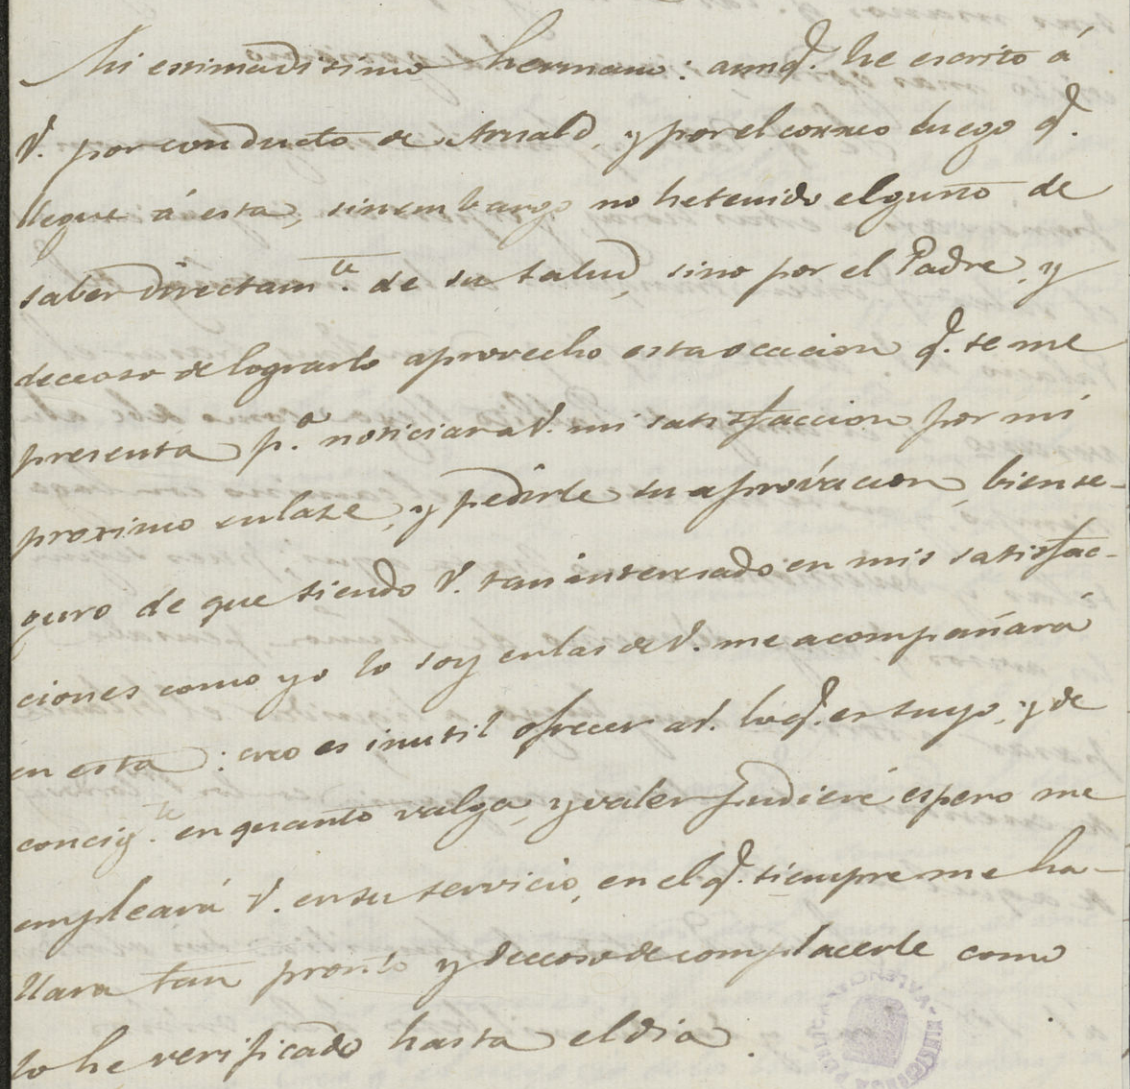 Mi estimadisimo hermano: aunq.e he escrito á
V. por conducto de Arnald, y por el correo luego q.e
llegue á esta, sinembargo no he tenido el gusto de
saber directam.te de su salud, sino por el Padre, y
deceoso de lograrlo aprovecho esta ocacion q.e se me
presenta p.a noticiar a V. mi satisfaccion por mi
proximo enlase, y pedirle su aprovacion, bien se-
guro de que siendo V. tan interesado en mis satisfac-
ciones como yo lo soy en las de V. me acompañará
en esta: creo es inutil ofrecer a V. lo q.e es suyo, y de
concig.te en quanto valga, y valer pudiere espero me
empleará V. en su servicio, en el q.e siempre me ha-
llara tan pronto y deceoso de complacerle como
lo he verificado hasta el dia.